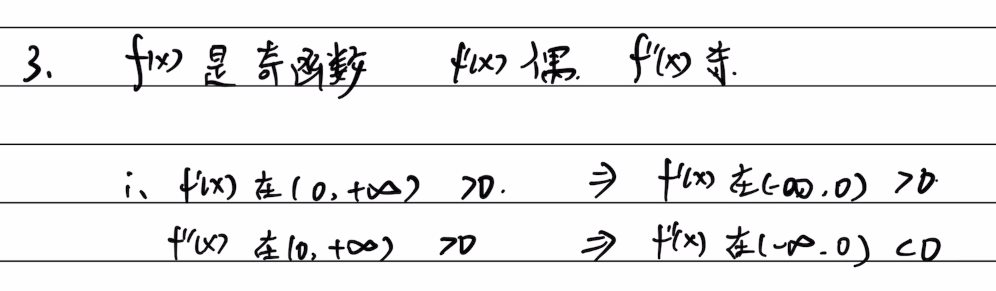 3. f(x) 是奇函数 f'(x) 偶. f''(x) 奇.
i、 f'(x) 在(0,+∞) >0. ⇒ f'(x) 在(-∞.0) >0
f''(x) 在(0,+∞) >0 ⇒ f''(x) 在(-∞.0) <0